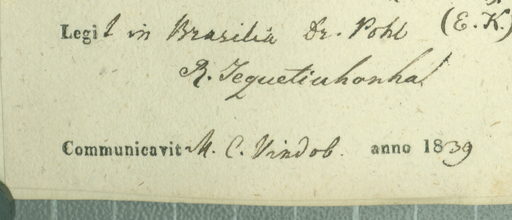 Legit in Brasilia Dr. Pohl (E. K.)
R. Jequetinhonha
Communicavit M. C. Vindob. anno 1839